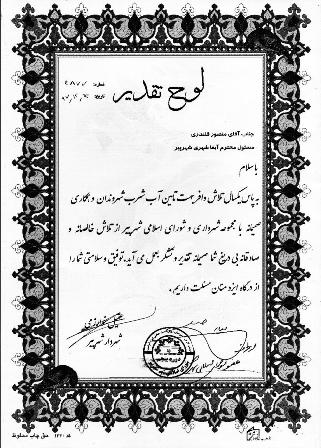 لوح تقدیر
شماره:
تاریخ:
جناب آقای منصور قلندری
مسئول محترم آبفا شهری شهرپیر
باسلام
به پاس یکسال تلاش وافر جهت تامین آب شرب شهروندان و همکاری
صمیمانه با مجموعه شهرداری و شورای اسلامی شهرپیر از تلاش خالصانه و
صادقانه بی دریغ شما صمیمانه تقدیر و تشکر بعمل می آید. توفیق و سلامتی شما را
از درگاه ایزد منان مسئلت داریم.
شهردار شهرپیر
کد ۱۲۲۰ حق چاپ محفوظ